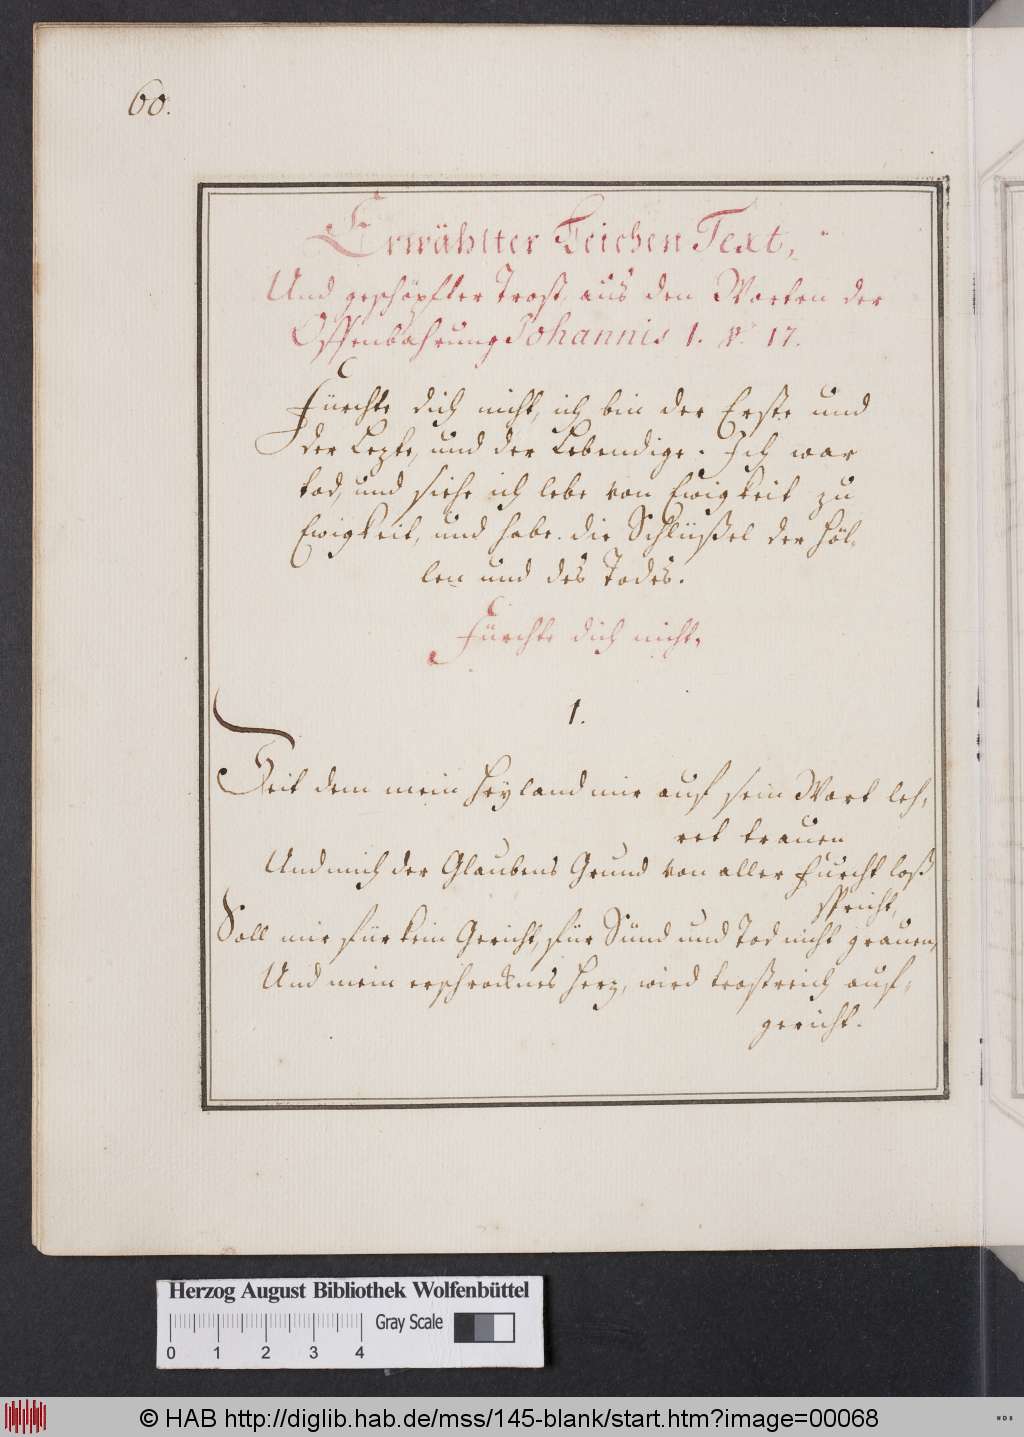 60.
Erwählter Leichen Text,
Und geschöpfter Trost, aus den Worten der
Offenbahrung Johannis 1. v. 17.
Fürchte dich nicht, ich bin der Erste und
der Lezte, und der Lebendige. Ich war
tod, und siehe ich lebe von Ewigkeit zu
Ewigkeit, und habe die Schlüßel der Höl-
len und des Todes.
Fürchte dich nicht.
1.
Seit dem mein Heyland mir auf sein Wort leh-
ret trauen
Und mich der Glaubens Grund von aller Furcht loß
spricht,
Soll mir für kein Gericht, für Sünd und Tod nicht grauen,
Und mein erschrocknes Herz, wird trostreich auf-
gericht.
Herzog August Bibliothek Wolfenbüttel
Gray Scale
0 1 2 3 4
© HAB http://diglib.hab.de/mss/145-blank/start.htm?image=00068